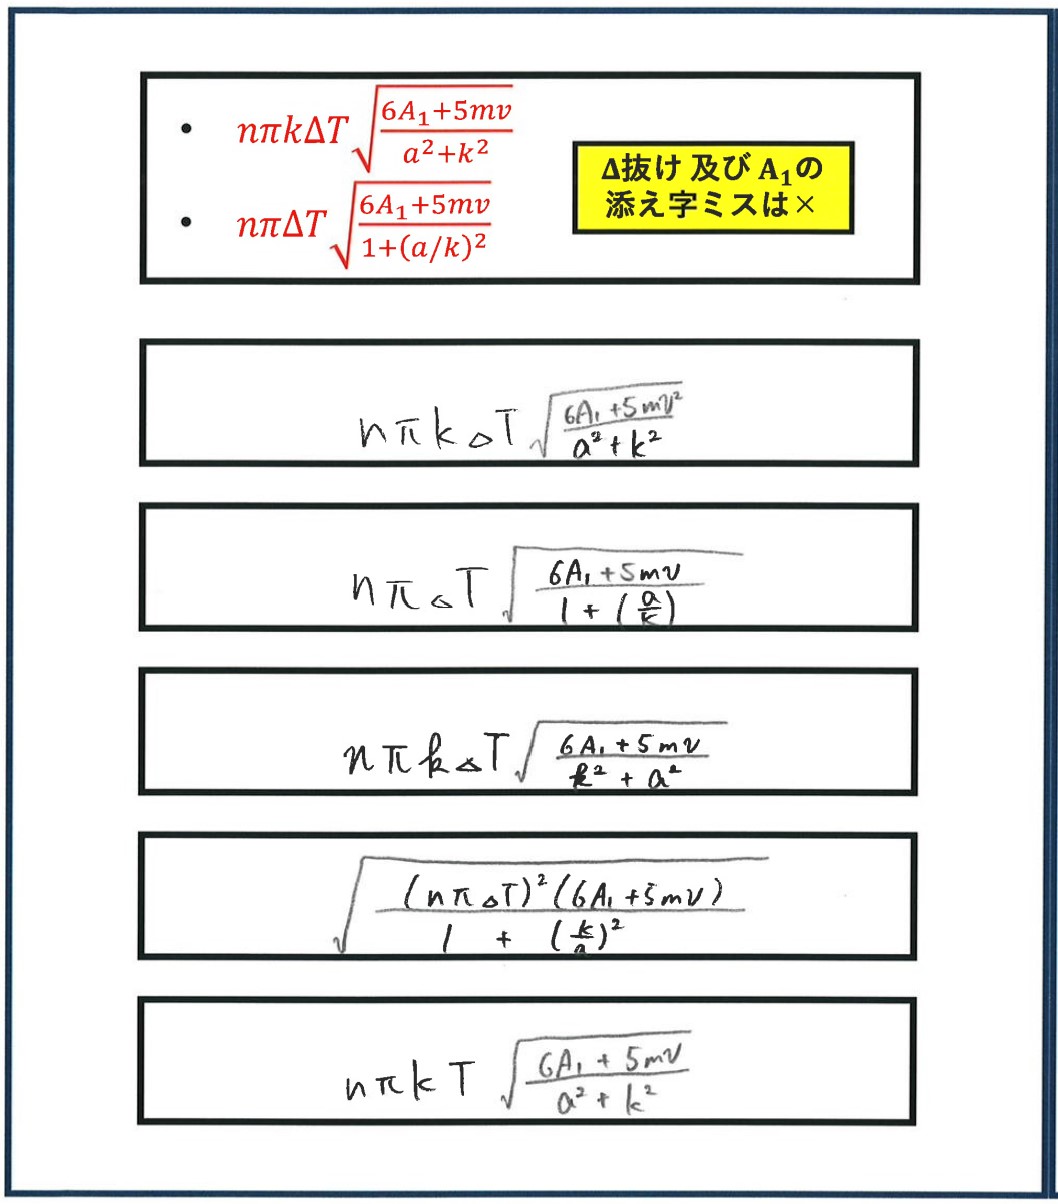 • nπkΔT√((6A₁+5mv)/(a²+k²))
• nπΔT√((6A₁+5mv)/(1+(a/k)²))
Δ抜け 及び A₁の
添え字ミスは×
nπkΔT√((6A₁+5mv²)/(a²+k²))
nπΔT√((6A₁+5mv)/(1+(a/k)))
nπkΔT√((6A₁+5mv)/(k²+a²))
√(((nπΔT)²(6A₁+5mv))/(1+(k/a)²))
nπkT√((6A₁+5mv)/(a²+k²))